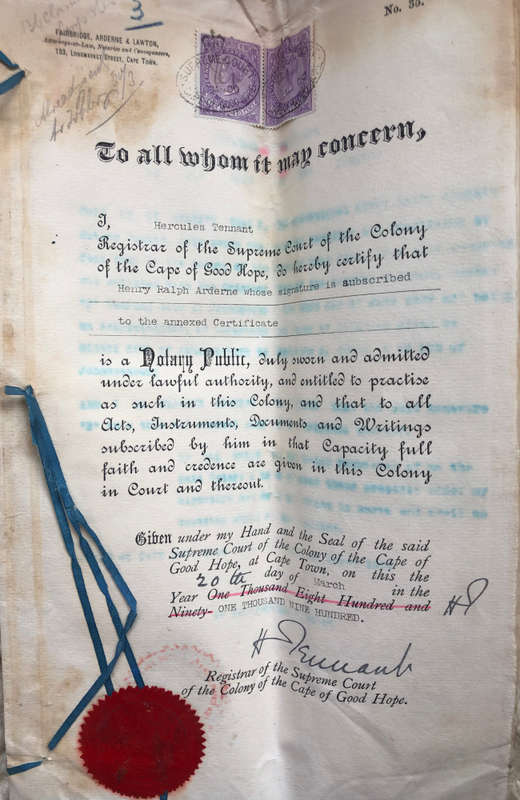 No. 30.
3
FAIRBRIDGE, ARDERNE & LAWTON,
Attorneys-at-Law, Notaries and Conveyancers,
133, LONGMARKET STREET, CAPE TOWN.
SUPREME COURT
To all whom it may concern,
I, Hercules Tennant
Registrar of the Supreme Court of the Colony
of the Cape of Good Hope, do hereby certify that
Henry Ralph Arderne whose signature is subscribed
to the annexed Certificate
is a Notary Public, duly sworn and admitted
under lawful authority, and entitled to practise
as such in this Colony, and that to all
Acts, Instruments, Documents and Writings
subscribed by him in that Capacity full
faith and credence are given in this Colony
in Court and thereout.
Given under my Hand and the Seal of the said
Supreme Court of the Colony of the Cape of
Good Hope, at Cape Town, on this the
20th day of March in the
Year One Thousand Eight Hundred and
Ninety- ONE THOUSAND NINE HUNDRED.
HT
H Tennant
Registrar of the Supreme Court
of the Colony of the Cape of Good Hope.